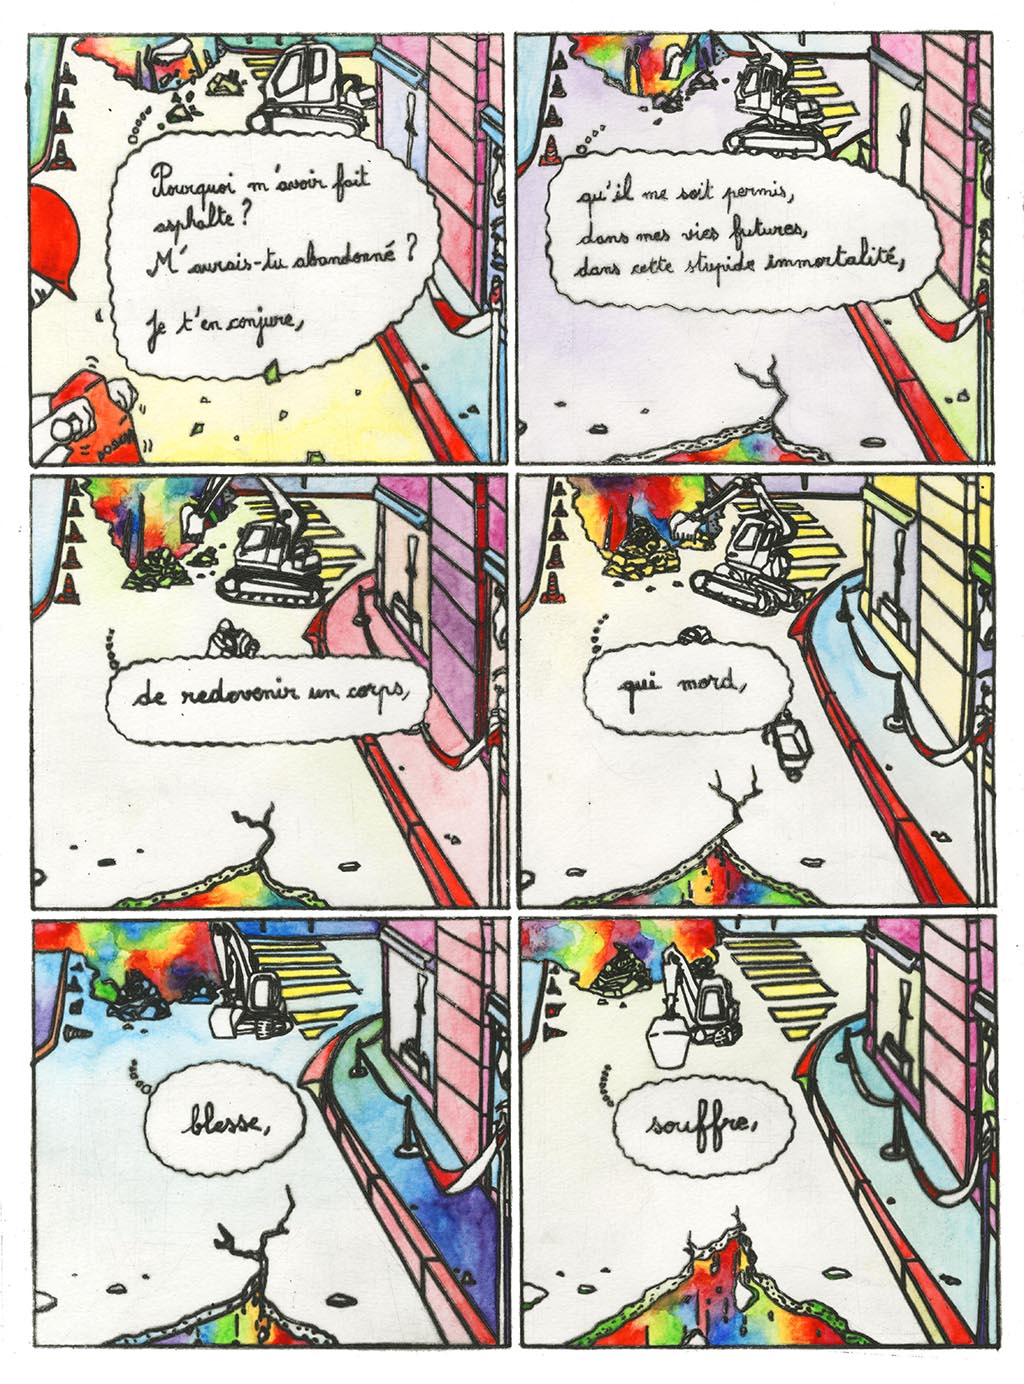 Pourquoi m'avoir fait
asphalte?
M'aurais-tu abandonné?
Je t'en conjure,
BOSCH
qu'il me soit permis,
dans mes vies futures,
dans cette stupide immortalité,
de redevenir un corps,
qui mord,
blesse,
souffre,